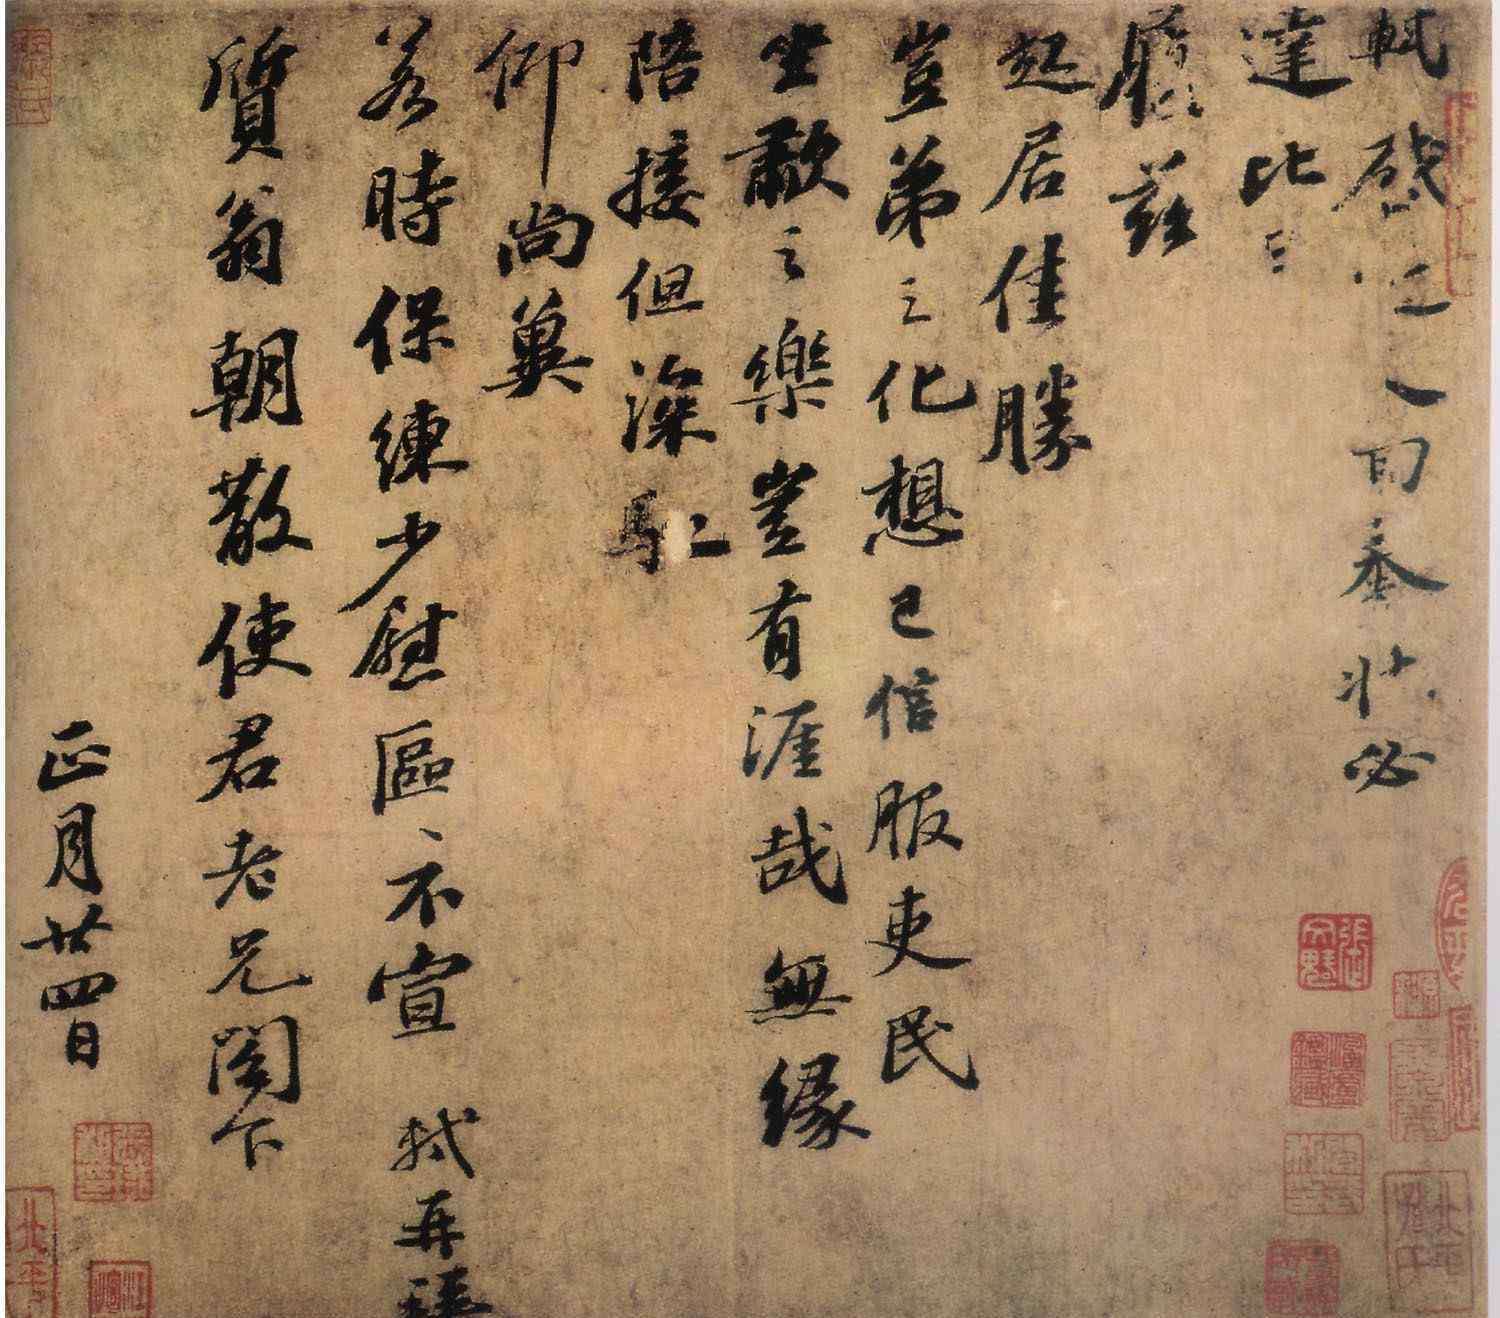 軾啟近人回奉狀必
達比
履茲
起居佳勝
豈弟之化想已信服吏民
坐歗之樂豈有涯哉無緣
陪接但深馳
仰尚冀
若時保練少慰區、不宣 軾再拜
質翁朝散使君老兄閤下
正月廿四日